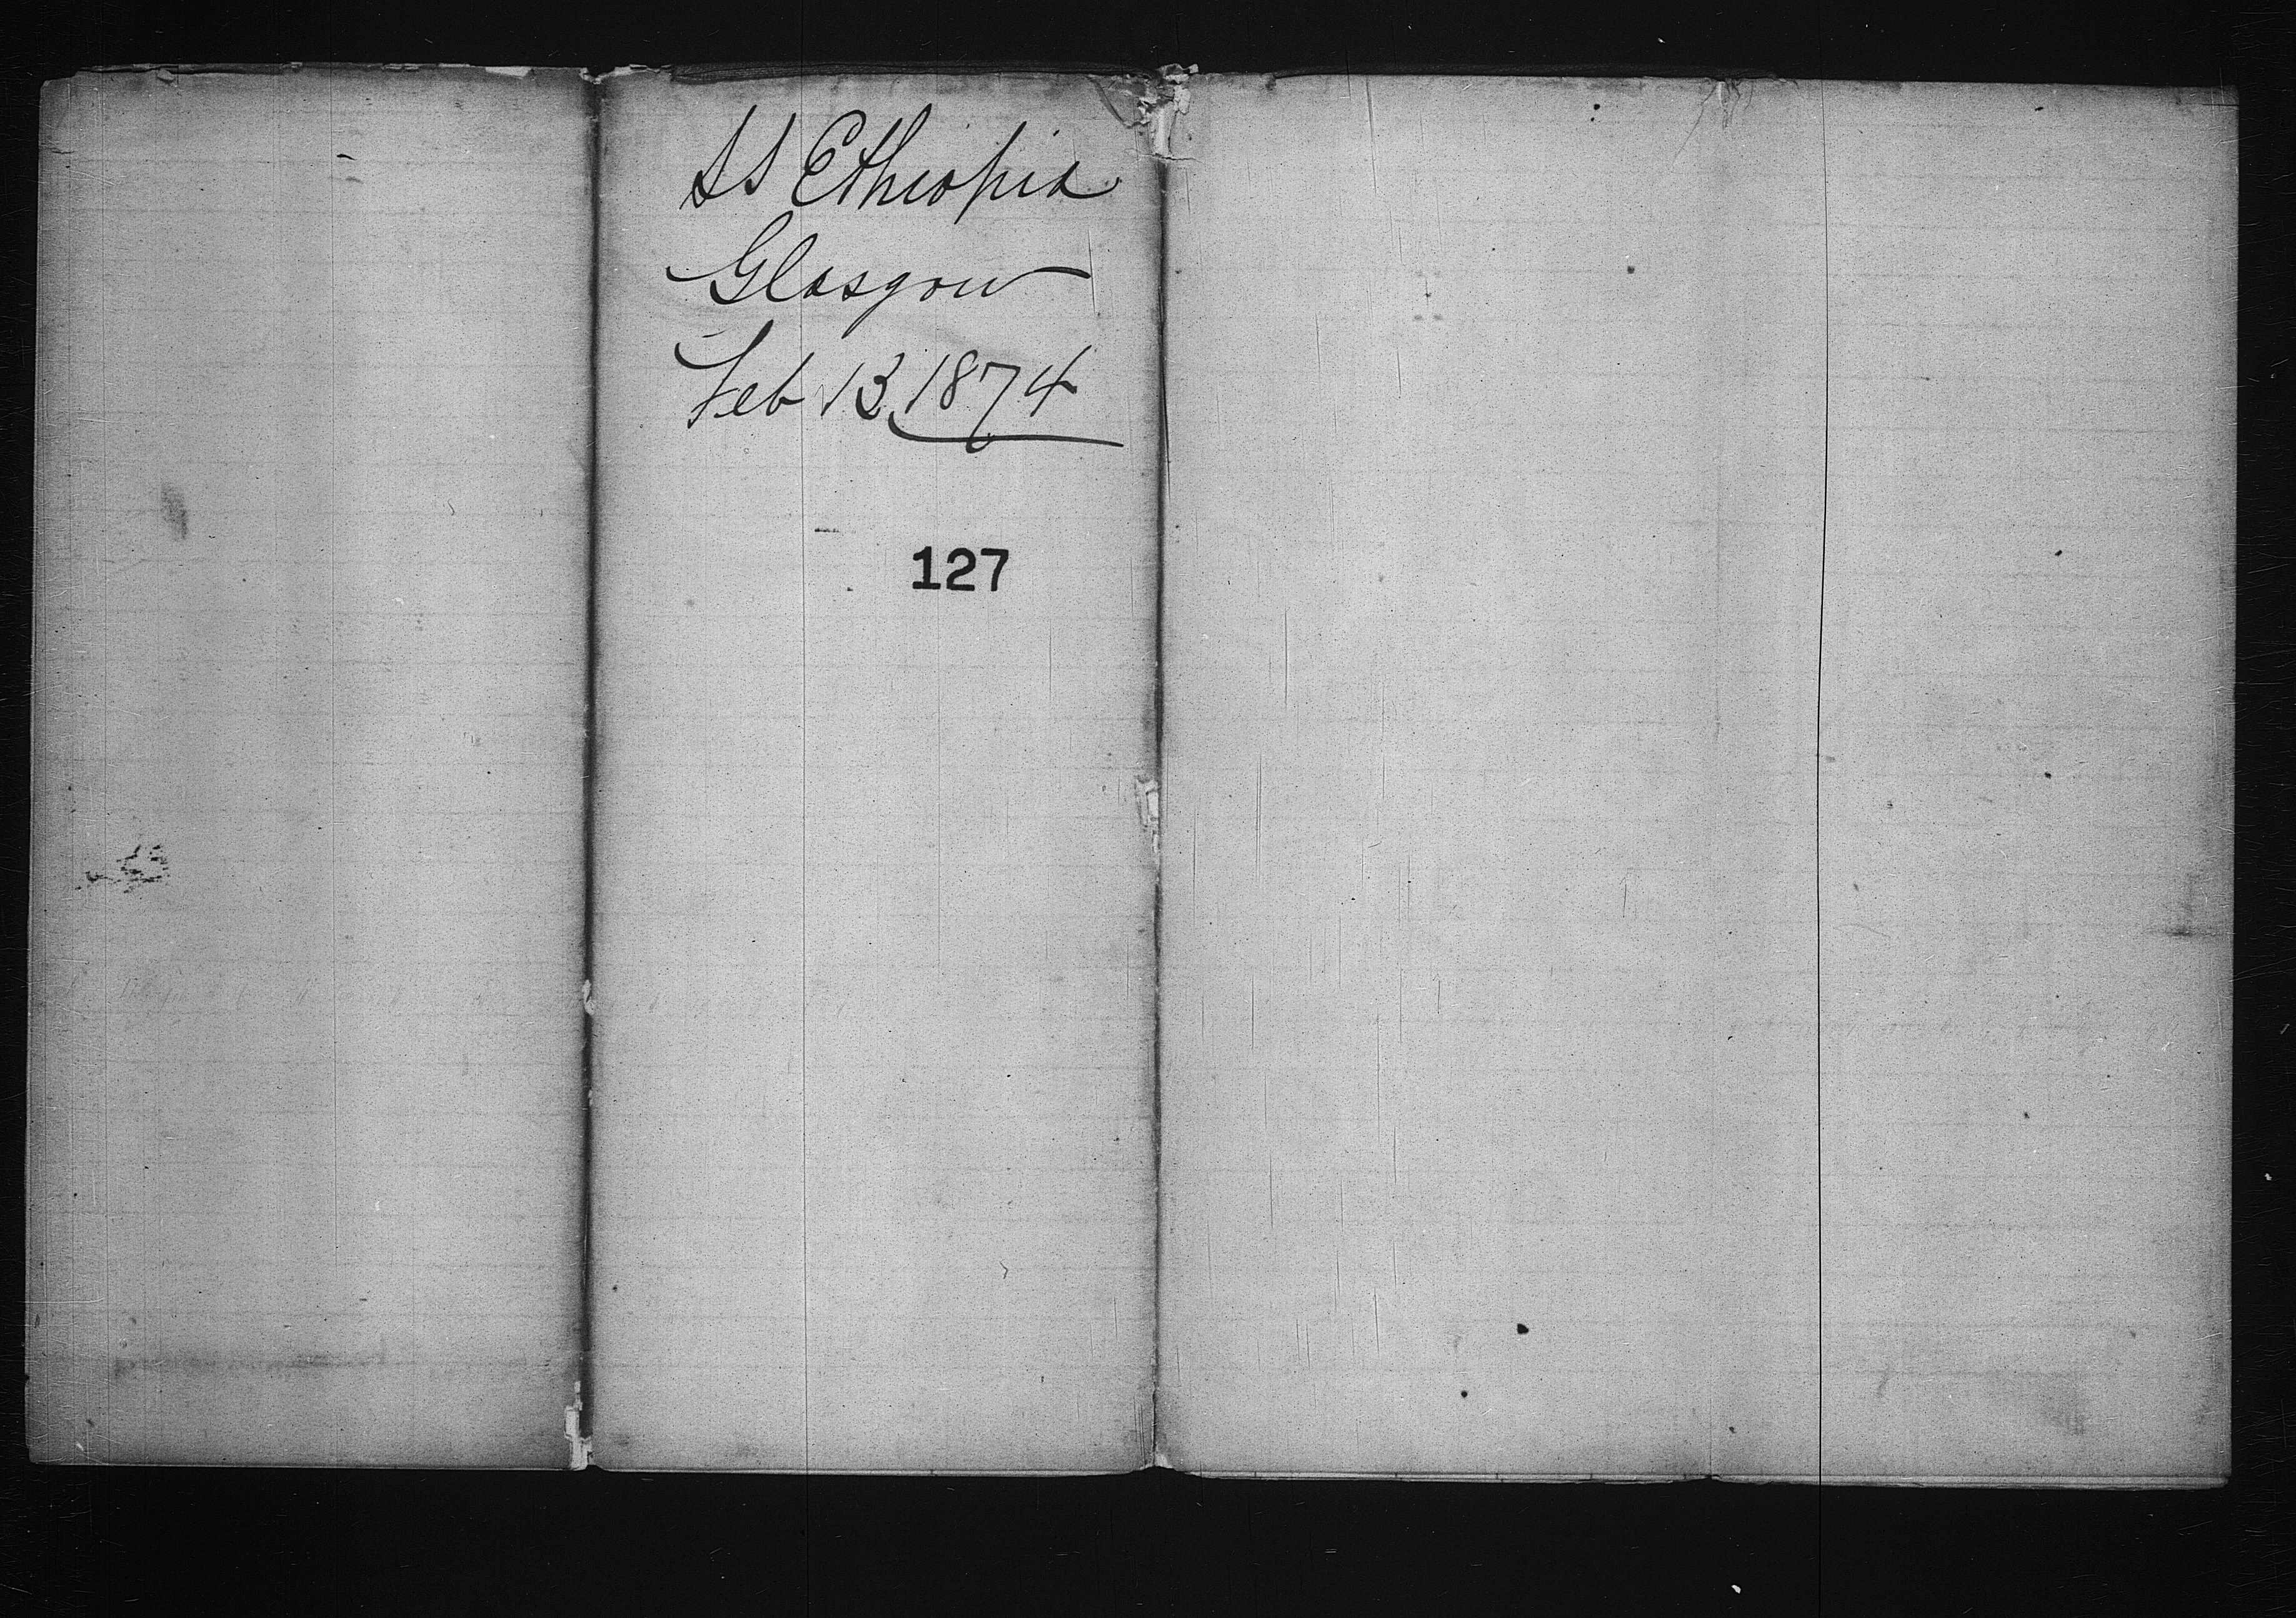 SS Ethiopia
Glasgow
Feb 13, 1874
127